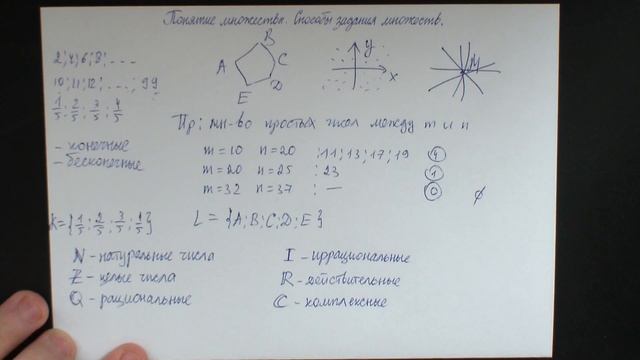 Понятие множества. Способы задания множеств.
2; 4; 6; 8; ...
10; 11; 12; ....; 99
1/5; 2/5; 3/5; 4/5
- конечные
- бесконечные
A B C D E
y x
M
Пр: мн-во простых чисел между m и n
m=10 n=20 ; 11; 13; 17; 19 4
m=20 n=25 : 23 1
m=32 n=37 : — 0 ∅
K={1/5; 2/5; 3/5; 4/5}
L = {A; B; C; D; E}
N - натуральные числа
Z - целые числа
Q - рациональные
I - иррациональные
R - действительные
C - комплексные